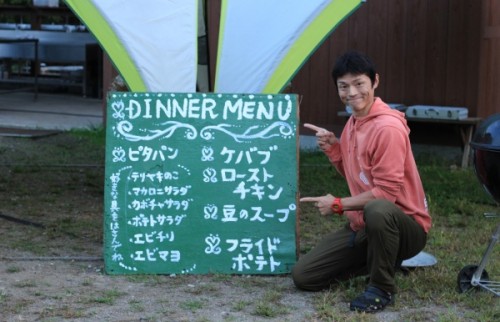 DINNER MENU
ピタパン
・テリヤキのこ
・マカロニサラダ
・カボチャサラダ
・ポテトサラダ
・エビチリ
・エビマヨ
好きな具をはさんでね
ケバブ
ロースト
チキン
豆のスープ
フライド
ポテト